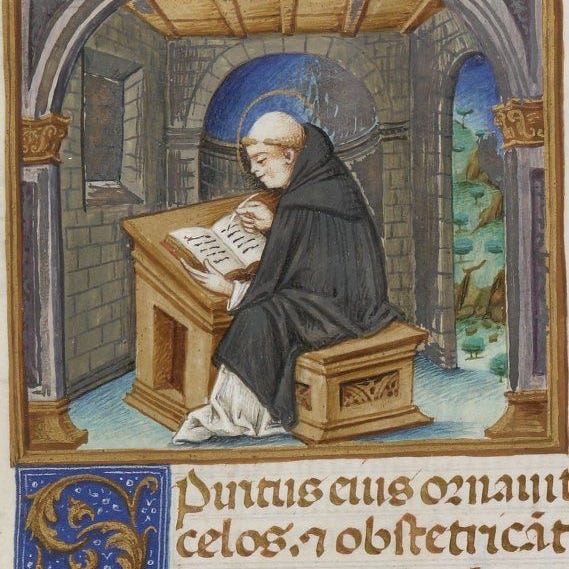 Spiritus eius ornauit
celos. ⁊ obstetricāt